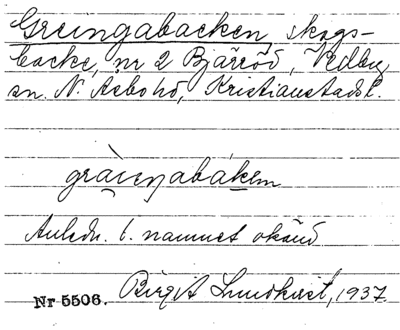 Greingabacken, skogs-
backe, nr 2 Bjärröd, Vedby
sn. N. Åsbo hd, Kristianstads l.
gràiengabákem
Anledn. t. namnet okänd
Nr 5506. Birgit Lundkvist, 1937.